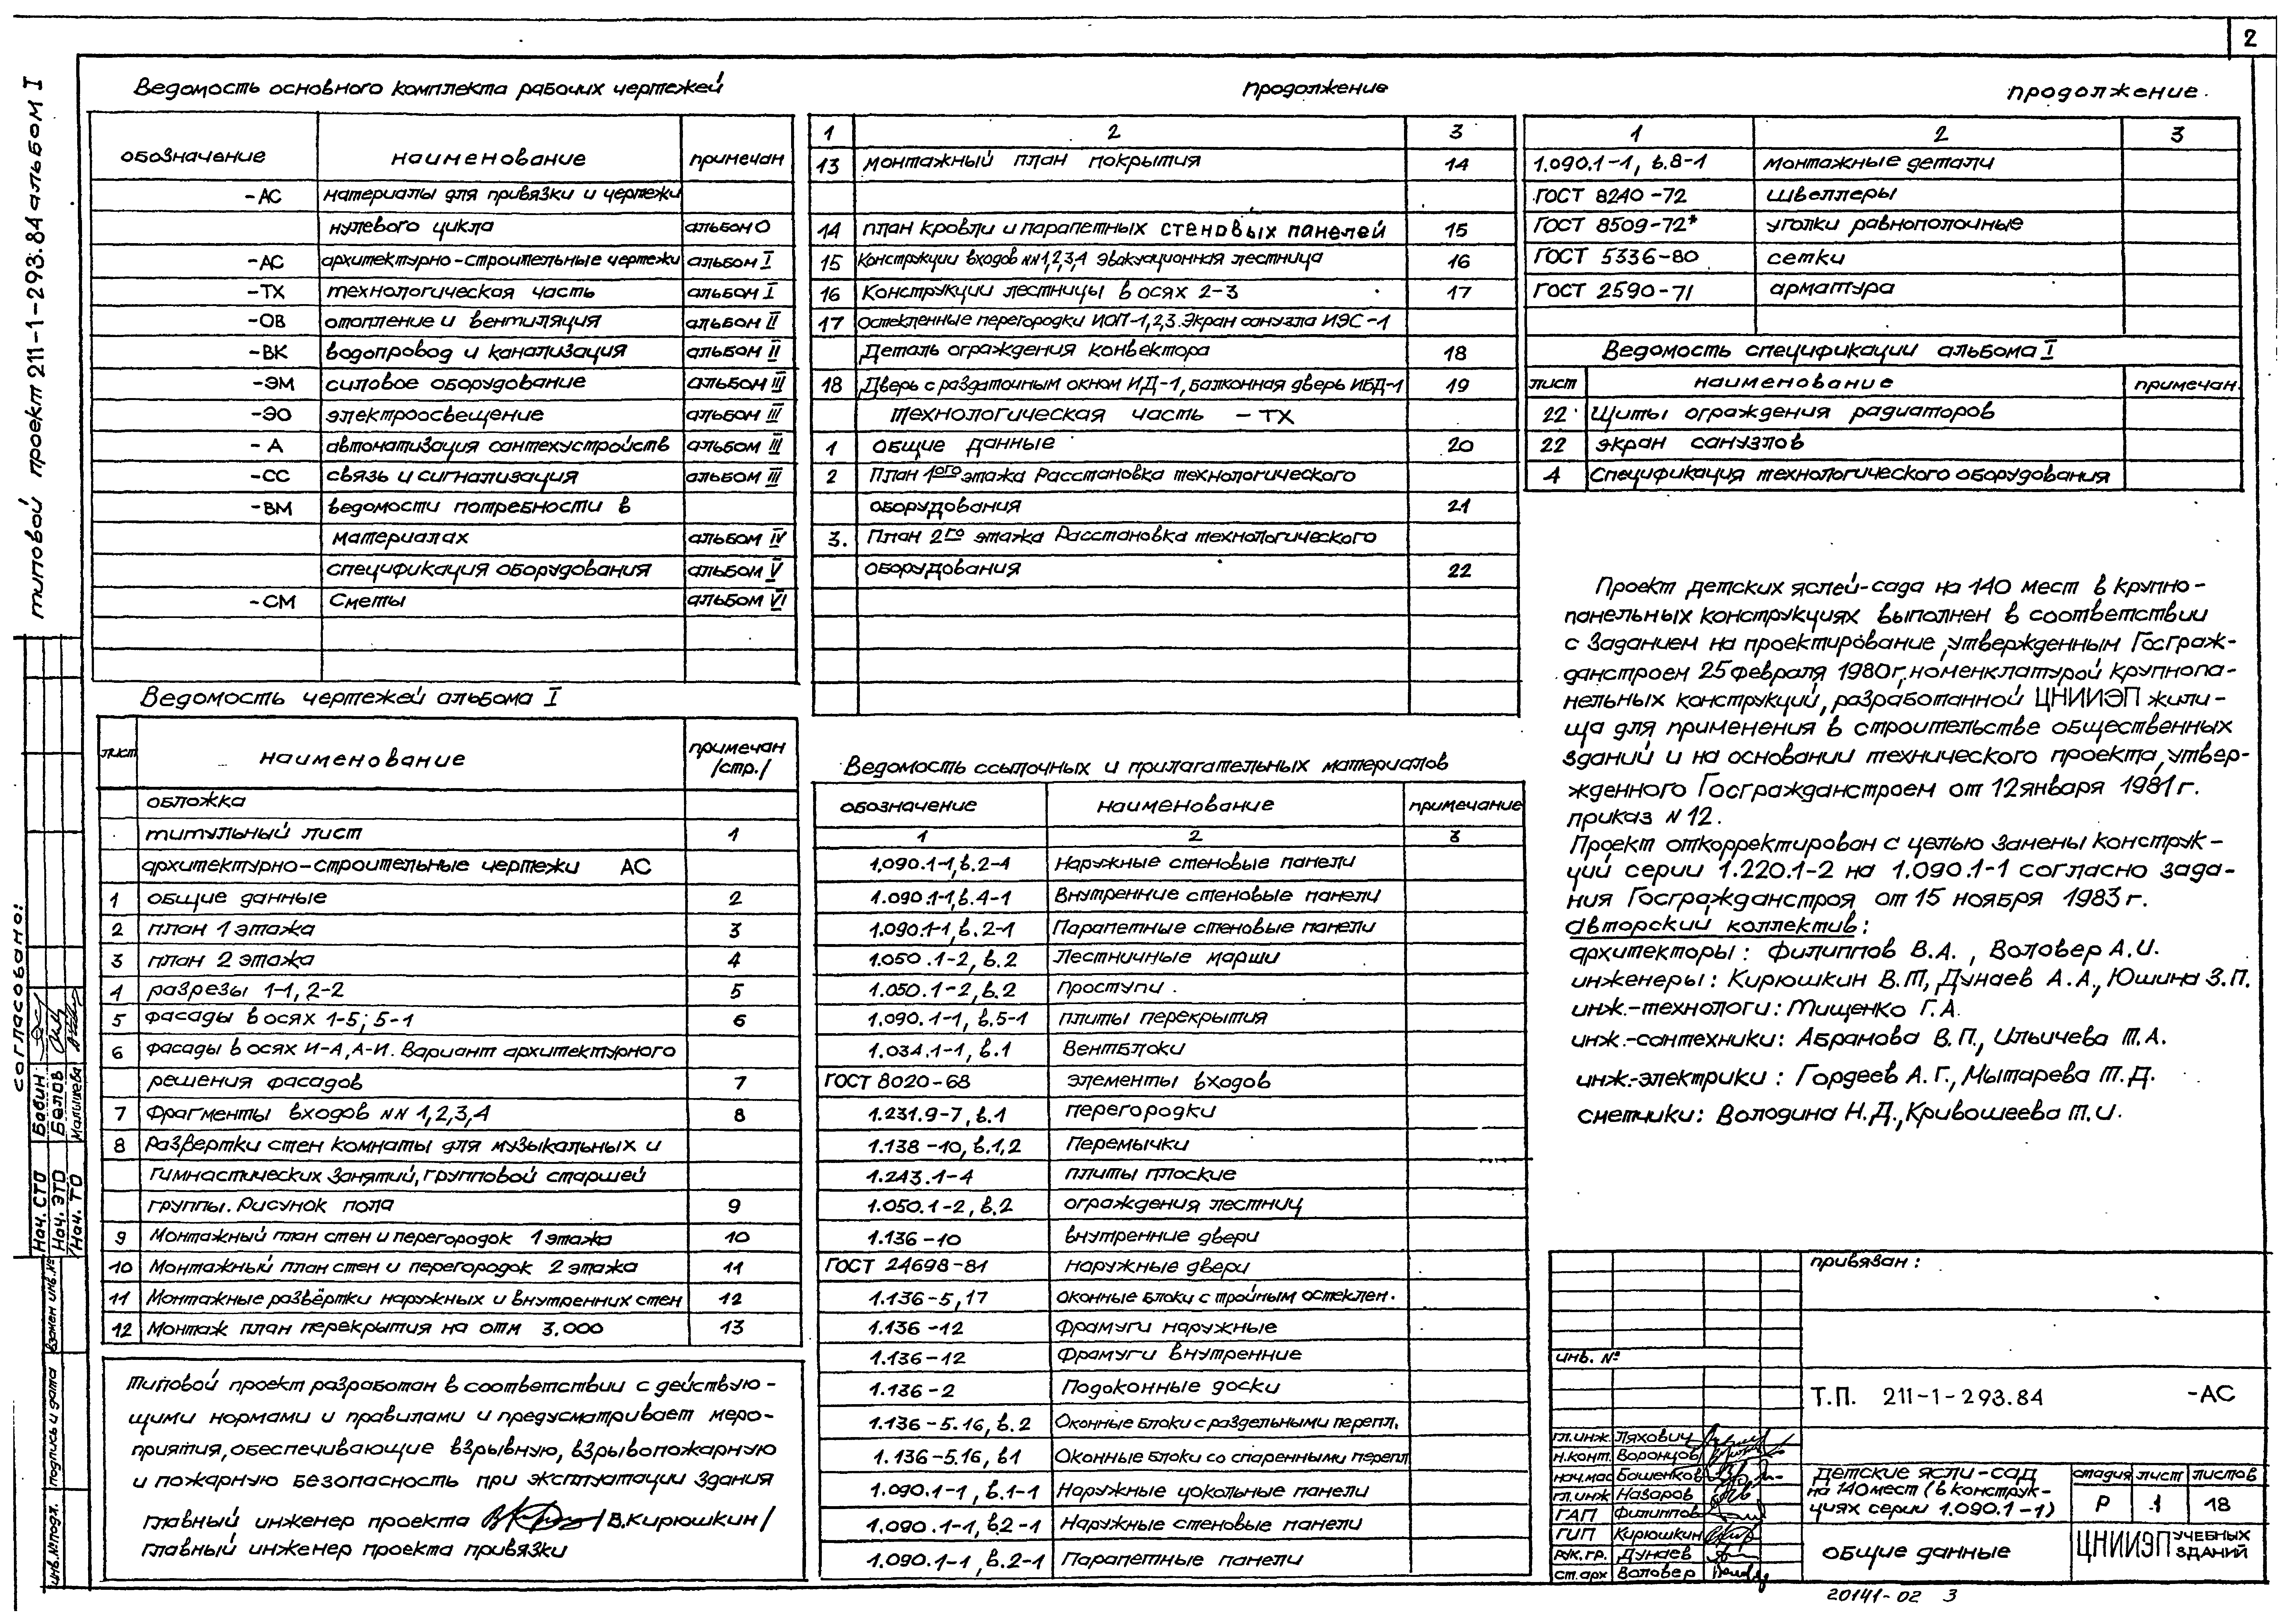 2
типовой проект 211-1-293.84 альбом I
Ведомость основного комплекта рабочих чертежей
обозначение наименование примечан
-АС материалы для привязки и чертежи
нулевого цикла альбом О
-АС архитектурно-строительные чертежи альбом I
-ТХ технологическая часть альбом I
-ОВ отопление и вентиляция альбом II
-ВК водопровод и канализация альбом II
-ЭМ силовое оборудование альбом III
-ЭО электроосвещение альбом III
-А автоматизация сантехустройств альбом III
-СС связь и сигнализация альбом III
-ВМ ведомости потребности в
материалах альбом IV
спецификация оборудования альбом V
-СМ Сметы альбом VI
Ведомость чертежей альбома I
лист наименование примечан /стр./
обложка
титульный лист 1
архитектурно-строительные чертежи АС
1 общие данные 2
2 план 1 этажа 3
3 план 2 этажа 4
4 разрезы 1-1, 2-2 5
5 фасады в осях 1-5; 5-1 6
6 фасады в осях И-А, А-И. Вариант архитектурного
решения фасадов 7
7 Фрагменты входов NN 1,2,3,4 8
8 Развертки стен комнаты для музыкальных и
гимнастических занятий, групповой старшей
группы. Рисунок пола 9
9 Монтажный план стен и перегородок 1 этажа 10
10 Монтажный план стен и перегородок 2 этажа 11
11 Монтажные развёртки наружных и внутренних стен 12
12 Монтаж план перекрытия на отм 3.000 13
Типовой проект разработан в соответствии с действую-
щими нормами и правилами и предусматривает меро-
приятия, обеспечивающие взрывную, взрывопожарную
и пожарную безопасность при эксплуатации здания
главный инженер проекта /В.Кирюшкин/
главный инженер проекта привязки
продолжение
1 2 3
13 монтажный план покрытия 14
14 план кровли и парапетных стеновых панелей 15
15 Конструкции входов NN 1,2,3,4 эвакуационная лестница 16
16 Конструкции лестницы в осях 2-3 17
17 Остекленные перегородки ИОП-1,2,3. Экран санузла ИЭС-1
Деталь ограждения конвектора 18
18 Дверь с раздаточным окном ИД-1, балконная дверь ИБД-1 19
технологическая часть -ТХ
1 общие данные 20
2 План 1ого этажа Расстановка технологического
оборудования 21
3. План 2го этажа Расстановка технологического
оборудования 22
Ведомость ссылочных и прилагательных материалов
обозначение наименование примечание
1 2 3
1.090.1-1, в.2-1 Наружные стеновые панели
1.090.1-1, в.4-1 Внутренние стеновые панели
1.090.1-1, в.2-1 Парапетные стеновые панели
1.050.1-2, в.2 Лестничные марши
1.050.1-2, в.2 Проступи.
1.090.1-1, в.5-1 плиты перекрытия
1.034.1-1, в.1 Вентблоки
ГОСТ 8020-68 элементы входов
1.231.9-7, в.1 перегородки
1.138-10, в.1,2 Перемычки
1.243.1-4 плиты плоские
1.050.1-2, в.2 ограждения лестниц
1.136-10 внутренние двери
ГОСТ 24698-81 наружные двери
1.136-5,17 Оконные блоки с тройным остеклен.
1.136-12 Фрамуги наружные
1.136-12 Фрамуги внутренние
1.136-2 Подоконные доски
1.136-5.16, в.2 Оконные блоки с раздельными перепл.
1.136-5.16, в1 Оконные блоки со спаренными перепл
1.090.1-1, в.1-1 Наружные цокольные панели
1.090.1-1, в2-1 Наружные стеновые панели
1.090.1-1, в.2-1 Парапетные панели
продолжение.
1 2 3
1.090.1-1, в.8-1 монтажные детали
ГОСТ 8240-72 швеллеры
ГОСТ 8509-72* уголки равнополочные
ГОСТ 5336-80 сетки
ГОСТ 2590-71 арматура
Ведомость спецификации альбома I
лист наименование примечан.
22 Щиты ограждения радиаторов
22 экран санузлов
4 Спецификация технологического оборудования
Проект детских яслей-сада на 140 мест в крупно-
панельных конструкциях выполнен в соответствии
с Заданием на проектирование, утвержденным Госграж-
данстроем 25 февраля 1980г, номенклатурой крупнопа-
нельных конструкций, разработанной ЦНИИЭП жили-
ща для применения в строительстве общественных
зданий и на основании технического проекта, утвер-
жденного Госгражданстроем от 12 января 1981г.
приказ N 12.
Проект откорректирован с целью замены конструк-
ций серии 1.220.1-2 на 1.090.1-1 согласно зада-
ния Госгражданстроя от 15 ноября 1983г.
авторский коллектив:
архитекторы: Филиппов В.А., Воловер А.И.
инженеры: Кирюшкин В.Т, Дунаев А.А., Юшина З.П.
инж.-технологи: Тищенко Г.А.
инж.-сантехники: Абрамова В.П., Ильичева Т.А.
инж.-электрики: Гордеев А.Г., Мытарева Т.Д.
сметчики: Володина Н.Д., Кривошеева Т.И.
привязан:
инв. №
Т.П. 211-1-293.84 -АС
гл.инж. Ляхович
н.конт. Воронцов
нач.мас Башенков
гл.инж Назаров
ГАП Филиппов
ГИП Кирюшкин
рук.гр. Дунаев
ст.арх Воловер
детские ясли-сад
на 140 мест (в конструк-
циях серии 1.090.1-1)
стадия лист листов
Р 1 18
общие данные
ЦНИИЭП УЧЕБНЫХ ЗДАНИЙ
20141-02 3
согласовано:
Нач. СТО Бабин
Нач. ЭТО Белов
Нач. ТО Малышева
взамен инв.№
подпись и дата
инв.№ подл.